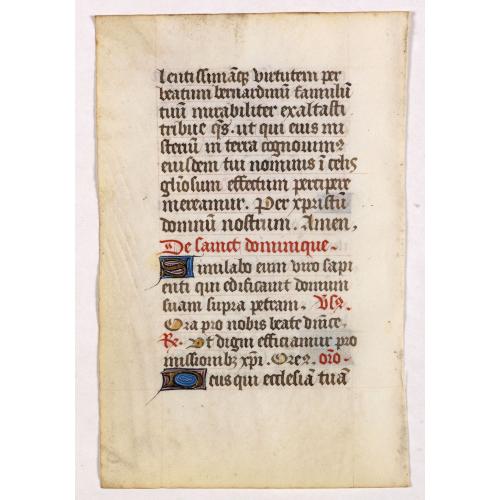 lentissimāqꝫ virtutem per
beatum bernardinū famulū
tuū mirabiliter exaltasti
tribue q̄s. ut qui eius mi
steriū in terra cognouimꝰ
eiusdem tui nominis ī celis
gl̄iosum effectum percipere
mereamur. Per xpristū
domnū nostrum. Amen,
De sainct dominique.
Similabo eum viro sapi
enti qui edificauit domum
suam supra petram. Vsꝰ.
Ora pro nobis beate dn̄ice.
R. Vt digni efficiamur pro
missionibꝫ xp̄i. Oreꝰ. orō.
Deus qui ecclesiā tuā